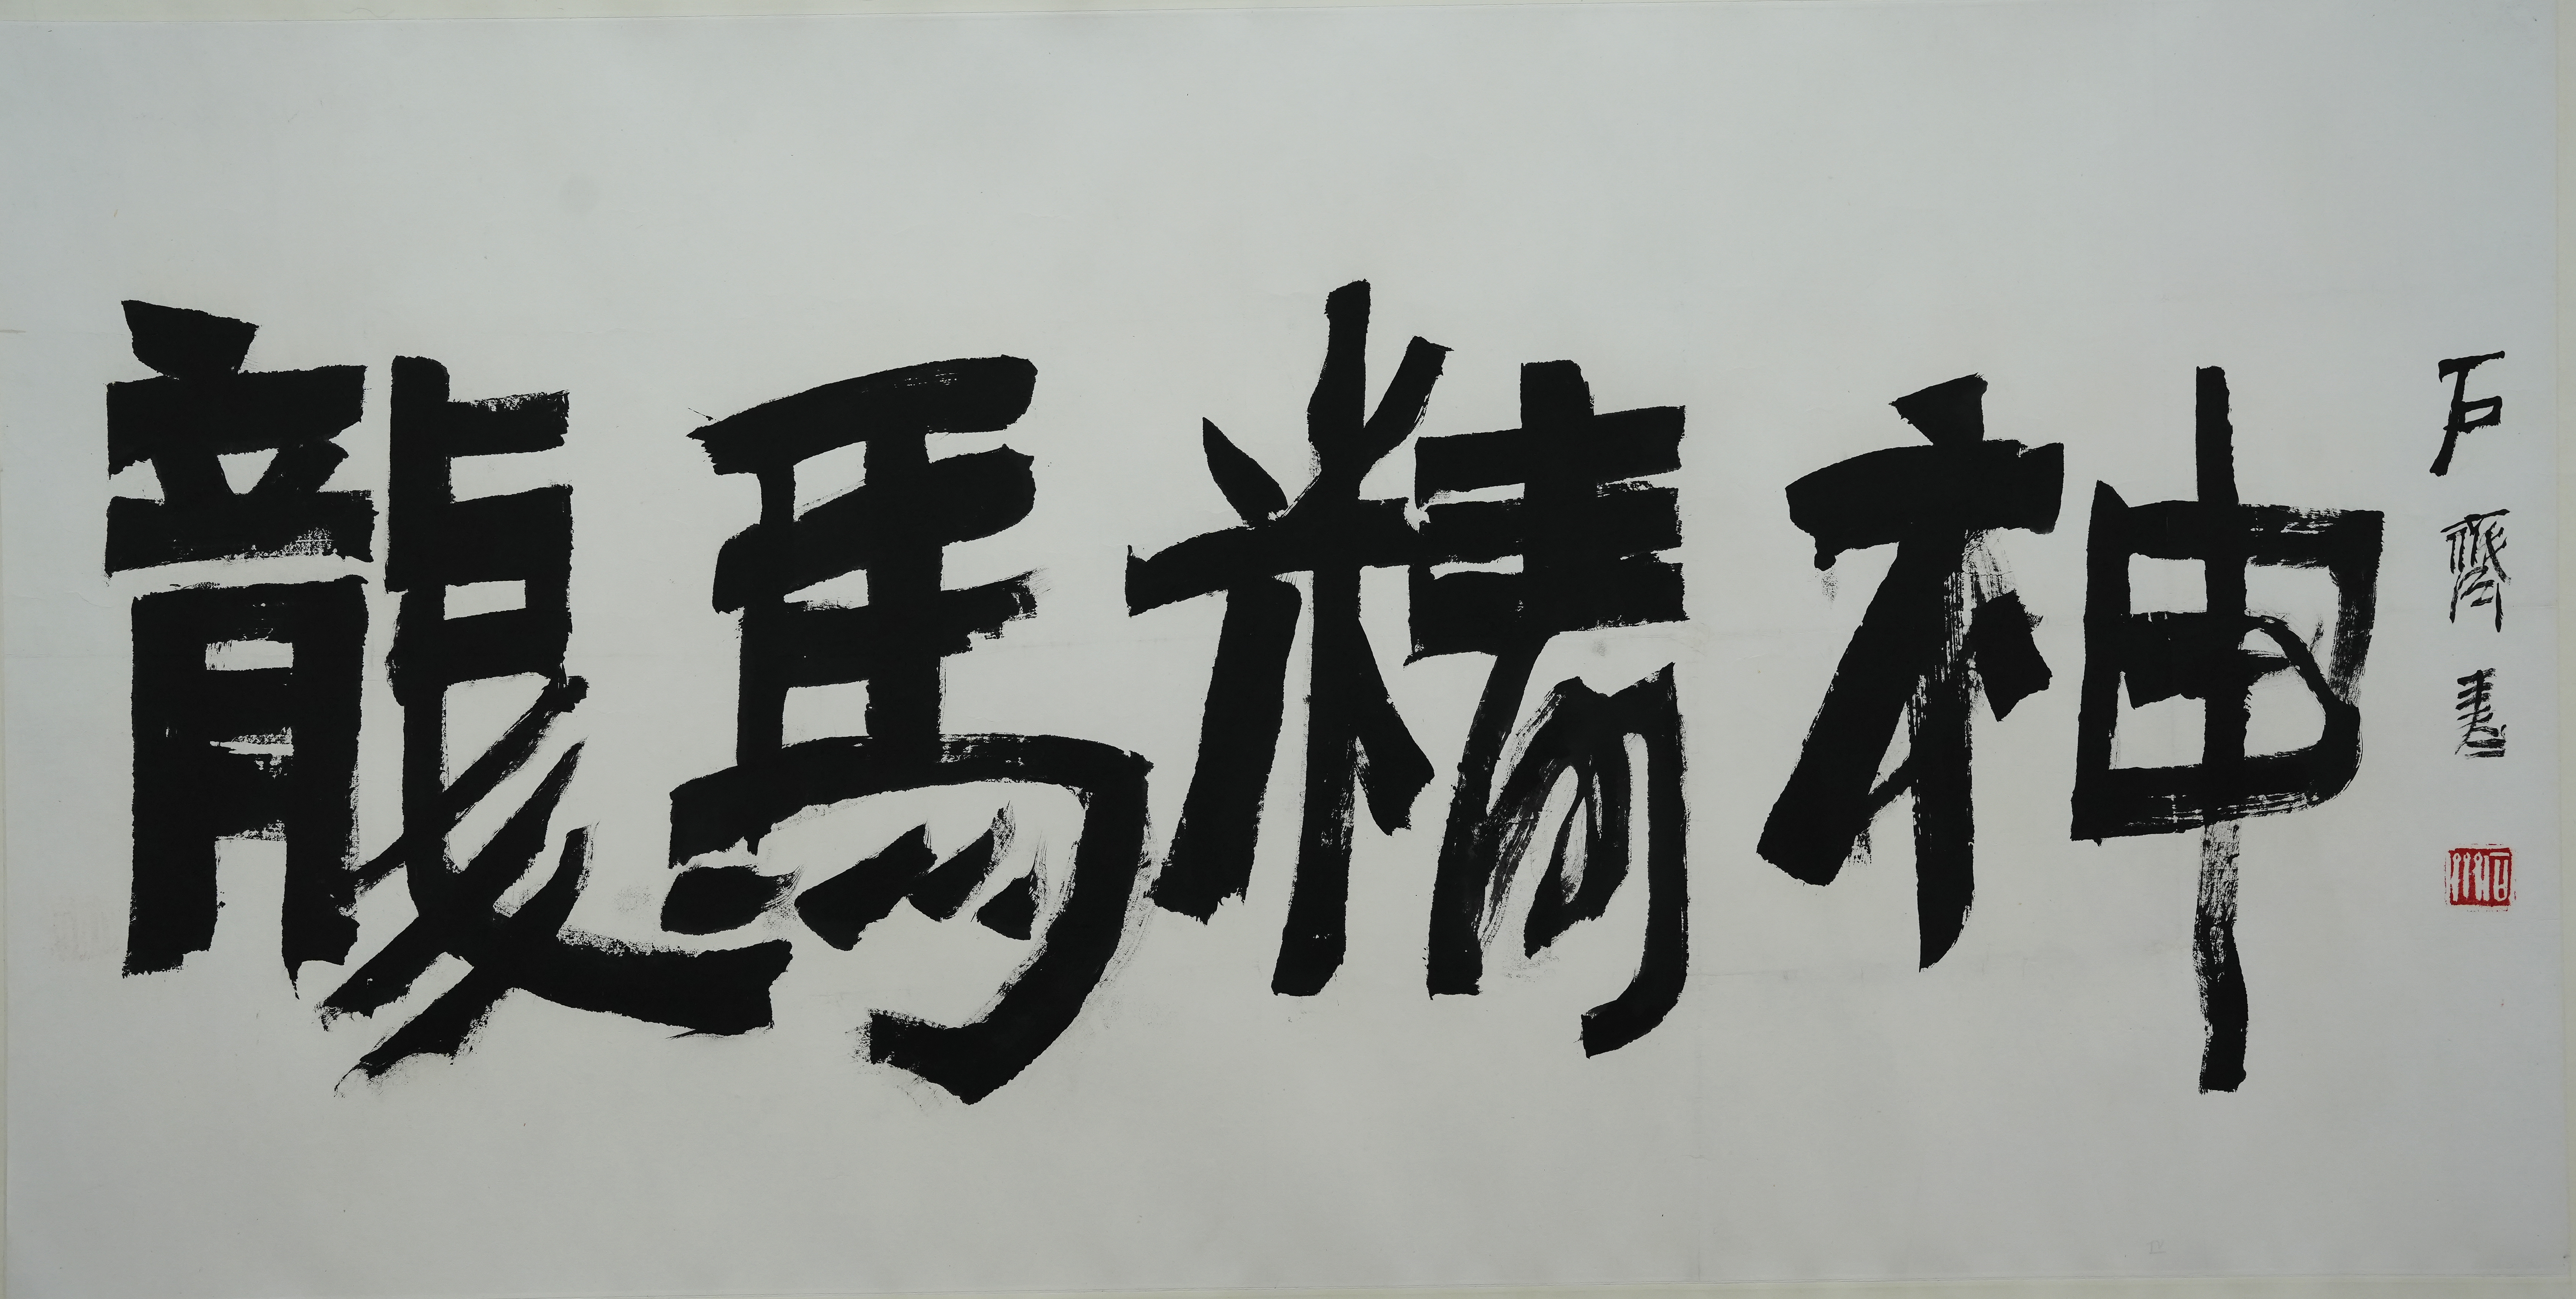 龍馬精神
石齊書